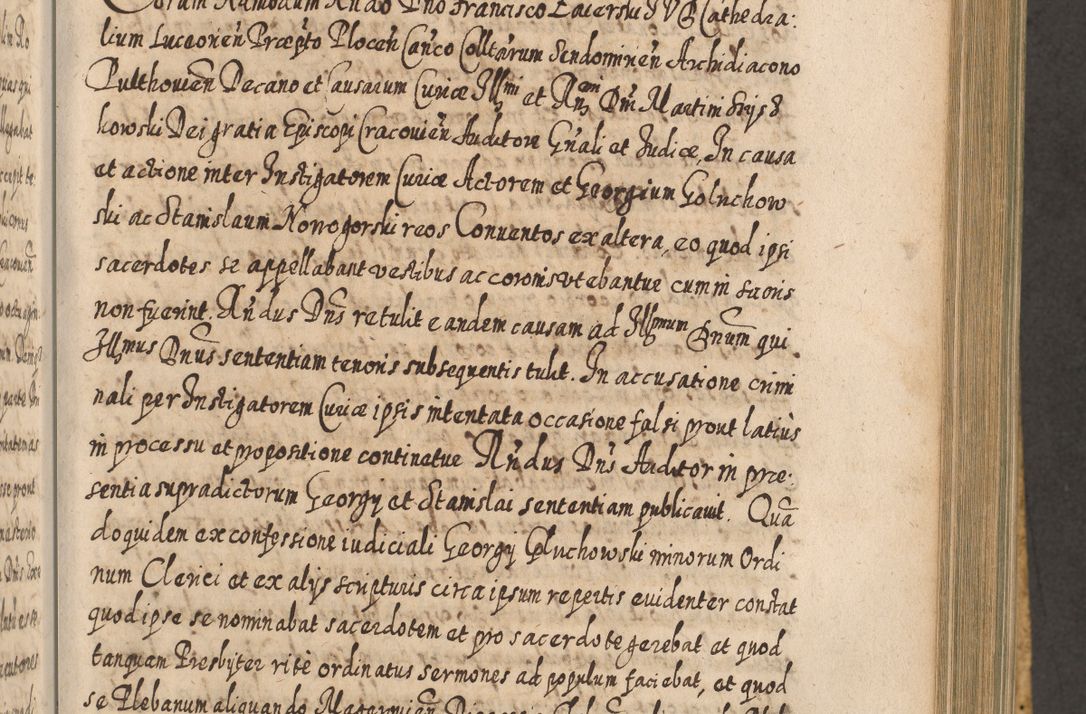 Coram Admodum Rndo Dno Francisco Lacerski J V D Cathedra:
lium Luceorien Praepto Plocen Canco Colltarum Sendomirien Archidiacono
Pulthouien Decano et Causarum Curiae Illmi et Rndissimi Dni Martini Szysz
kowski Dei gratia Episcopi Cracouien Auditore Gnali et Judice, In causa
et actione inter Instigatorem Curiae Actorem et Georgium Goluchow
ski ac Stanislaum Nowogorski reos Conuentos ex altera, eo quod ipsi
sacerdotes se appellabant vestibus ac coronis vtebantur cum in sacris
non fuerint. Rndus Dns retulit eandem causam ad Illmum Dnum qui
Illmus Dnus sententiam tenoris subsequentis tulit. In accusatione crimi
nali per Instigatorem Curiae ipsis intentata occasione falsi prout latius
in processu et propositione continetur Rndus Dns Auditor in prae:
sentia supradictorum Georgij et Stanislai sententiam publicauit. Qua
doquidem ex confessione iudiciali Georgij Goluchowski minorum Ordi
num Clerici et ex alijs scripturis circa ipsum repertis euidenter constat
quod ipse se nominabat sacerdotem et pro sacerdote gerebat et quod
tanquam Presbyter rite ordinatus sermones ad populum faciebat, et quod
se Plebanum aliquando